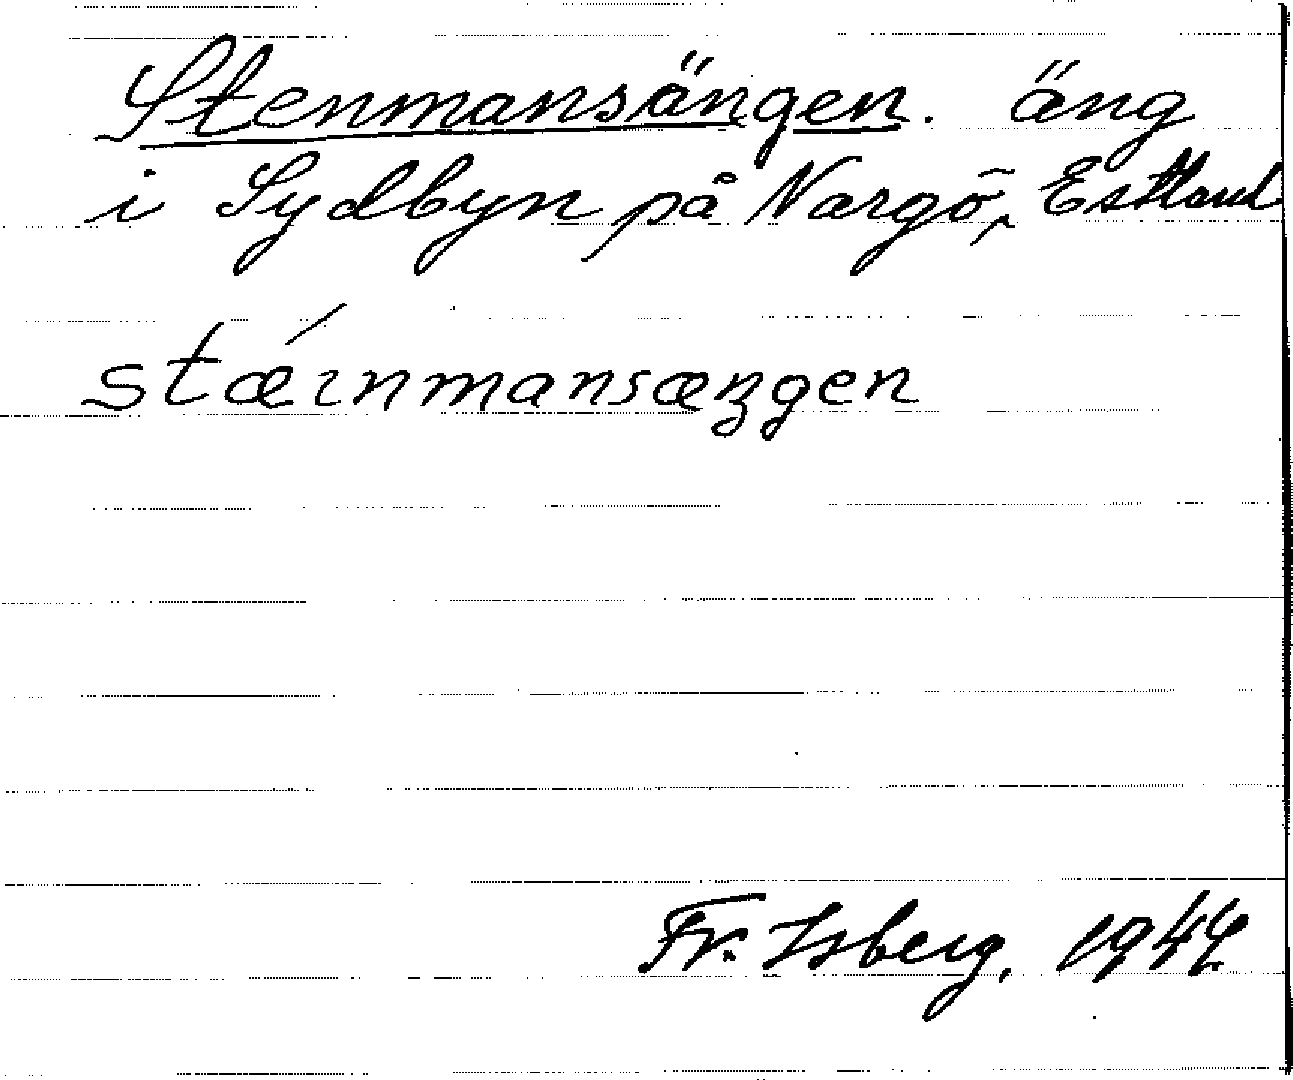 Stenmansängen. äng
i Sydbyn på Nargö, Estland
stǽınmansæŋgen
Fr. Isberg, 1944